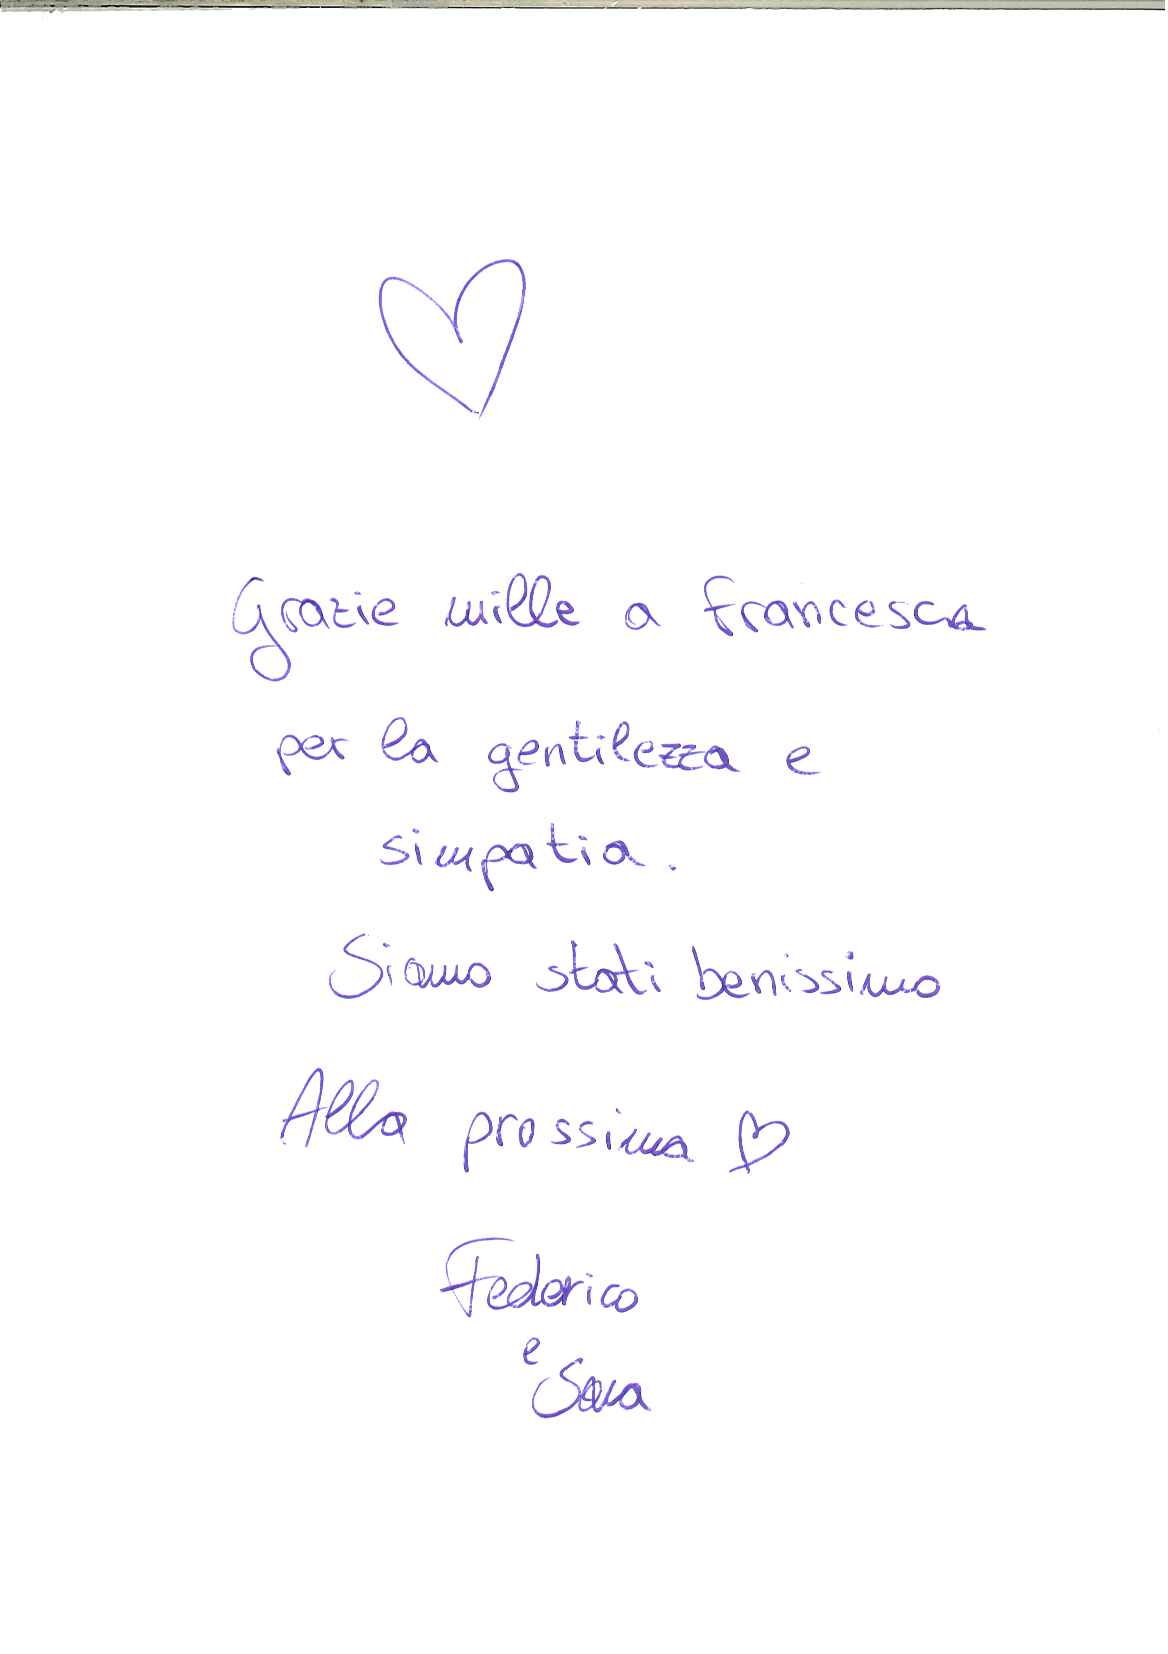 Grazie mille a francesca
per la gentilezza e
simpatia.
Siamo stati benissimo
Alla prossima
Federico
e
Sara